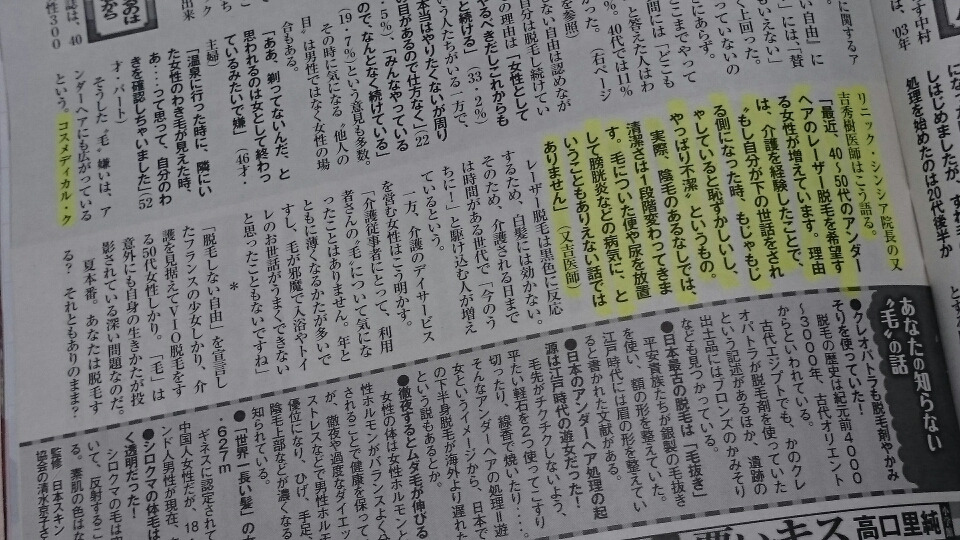 す中村
は、'03年
しはじめましたが、
処理を始めたのは20代後半か
に関するア
い自由」に
」には「賛
もいえない」
く上回った。
っていないの
にあらず。
こまでやって
間には「どこも
と答えた人はわ
%。40代では11%
かった。（右ペー
ジを参照）
ない自由は認めなが
自分は脱毛し続けてい
の理由は「女性として
やるべきだしこれからも
と続ける」（33・2%）
いう人たちがいる一方で、
本当はやりたくないが周り
の目があるので仕方なく」（22
・5%）「みんなやっている
ので、なんとなく続けている」
（19・7%）という意見も多数。
その時に気になる〝他人の
目〟は男性ではなく女性の場
合もある。
「ああ、剃ってないんだ、と
思われるのは女として終わっ
ているみたいで嫌」（46才・
主婦）
「温泉に行った時に、隣にい
た女性のわき毛が見えた時、
あ…って思って、自分のわ
きを確認しちゃいました」（52
才・パート）
そうした〝毛〟嫌いは、ア
ンダーヘアにも広がっている
という。コスメディカル・ク
リニック・シンシア院長の又
吉秀樹医師はこう語る。
「最近、40～50代のアンダー
ヘアのレーザー脱毛を希望す
る女性が増えています。理由
は、介護を経験したことで、
〝もし自分が下の世話をされ
る側になった時、もじゃもじ
ゃしていると恥ずかしいし、
やっぱり不潔〟というもの。
実際、陰毛のあるなしでは、
清潔さは1段階変わってきま
す。毛についた便や尿を放置
して膀胱炎などの病気に、と
いうこともありえない話では
ありません」（又吉医師）
レーザー脱毛は黒色に反応
するため、白髪には効かない。
そのため、介護される日まで
は時間がある世代で「今のう
ちに！」と駆け込む人が増え
ているという。
一方、介護のデイサービス
を営む女性はこう明かす。
「介護従事者にとって、利用
者さんの〝毛〟について気にな
ったことはありません。年と
ともに薄くなるかたが多いで
すし、毛が邪魔で入浴やトイ
レのお世話がうまくできない
と思ったこともないですね」
＊
「脱毛しない自由」を宣言し
たフランスの少女しかり、介
護を見据えてVIO脱毛をす
る50代女性しかり。「毛」は
意外にも自身の生きかたが投
影されている深い問題なのだ。
夏本番。あなたは脱毛す
る？　それともありのまま？
あなたの知らない
〝毛〟の話
●クレオパトラも脱毛剤やかみ
そりを使っていた！
脱毛の歴史は紀元前4000
～3000年、古代オリエント
からといわれている。
古代エジプトでも、かのクレ
オパトラが脱毛剤を使っていた
という記述があるほか、遺跡の
出土品にはブロンズのかみそり
なども見つかっている。
●日本最古の脱毛は「毛抜き」
平安貴族たちが銀製の毛抜き
を使い、額の形を整えていた。
江戸時代には眉の形を整えてい
ると書かれた文献がある。
●日本のアンダーヘア処理の起
源は江戸時代の遊女だった！
毛先がチクチクしないよう、
平たい軽石を2つ使ってこすり
切ったり、線香で焼いたり…。
そんなアンダーヘアの処理＝遊
女というイメージから、日本で
の下半身脱毛が海外より遅れた
という説もあるとか。
●徹夜するとムダ毛が伸びる
女性の体は女性ホルモンと
性ホルモンがバランスよく分
されることで健康を保って
が、徹夜や過度なダイエッ
ストレスなどで男性ホルモ
優位になり、ひげ、手足、
陰毛上部などが濃くなる
知られている。
●「世界一長い髪」の女
.627m
ギネスに認定されて
中国人女性だが、18
ンド人男性が現在、
●シロクマの体毛は
く透明だった！
シロクマの毛は空
いて、反射すること
る。素肌の色はな
監修　日本スキン
協会の清水京子さ
高口里純